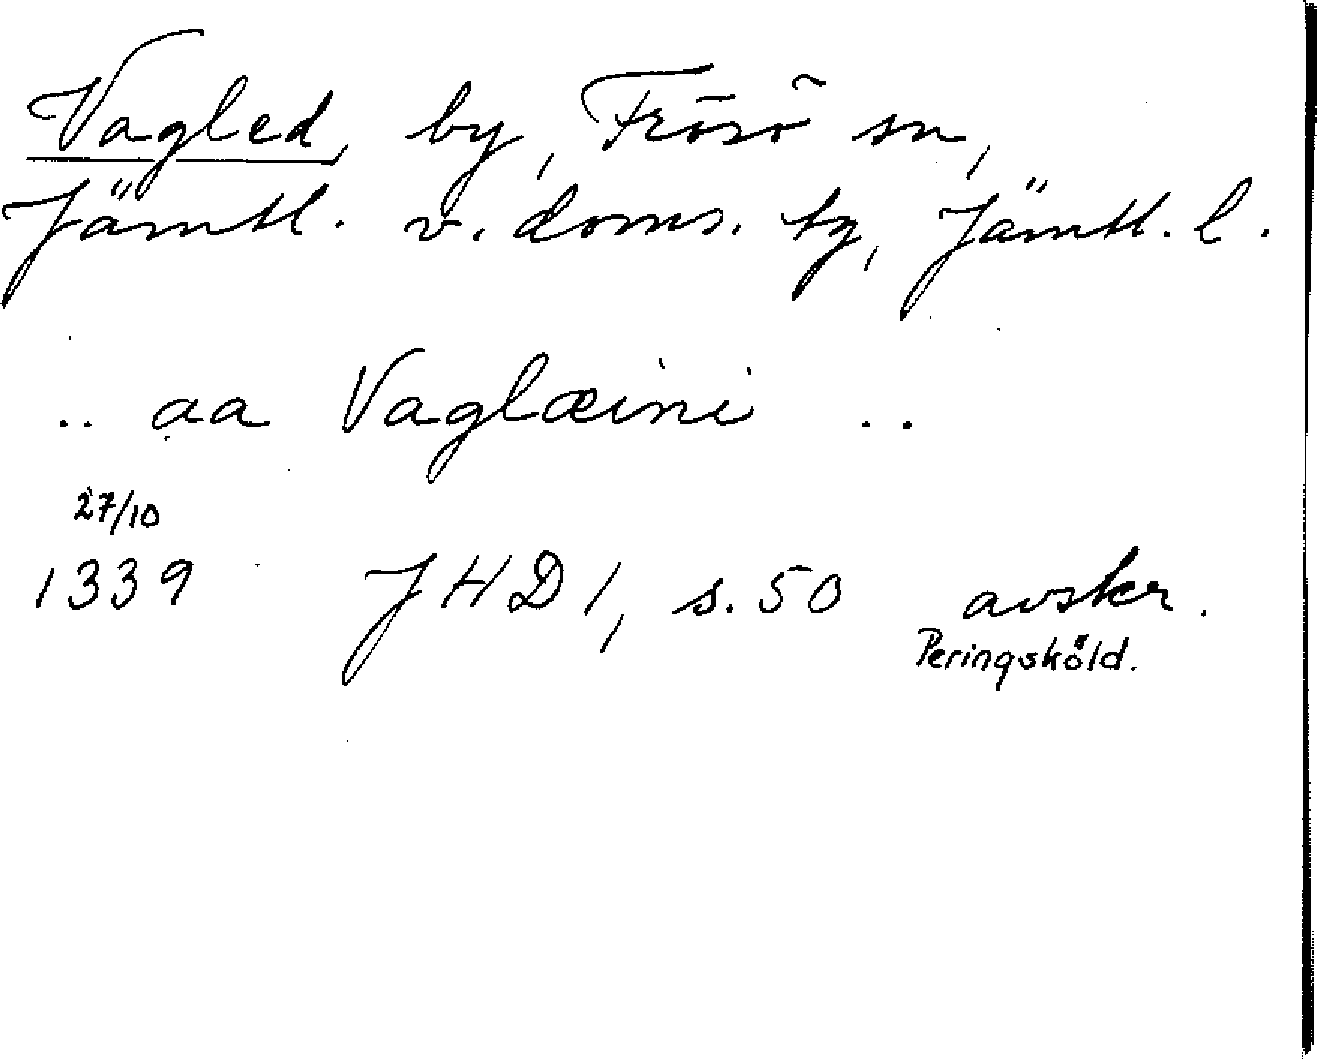 Vagled, by, Frösö sn,
Jämtl. v. doms. tg, Jämtl. l.
.. aa Vaglæini ..
27/10
1339 JHD 1, s. 50 avskr.
Peringsköld.